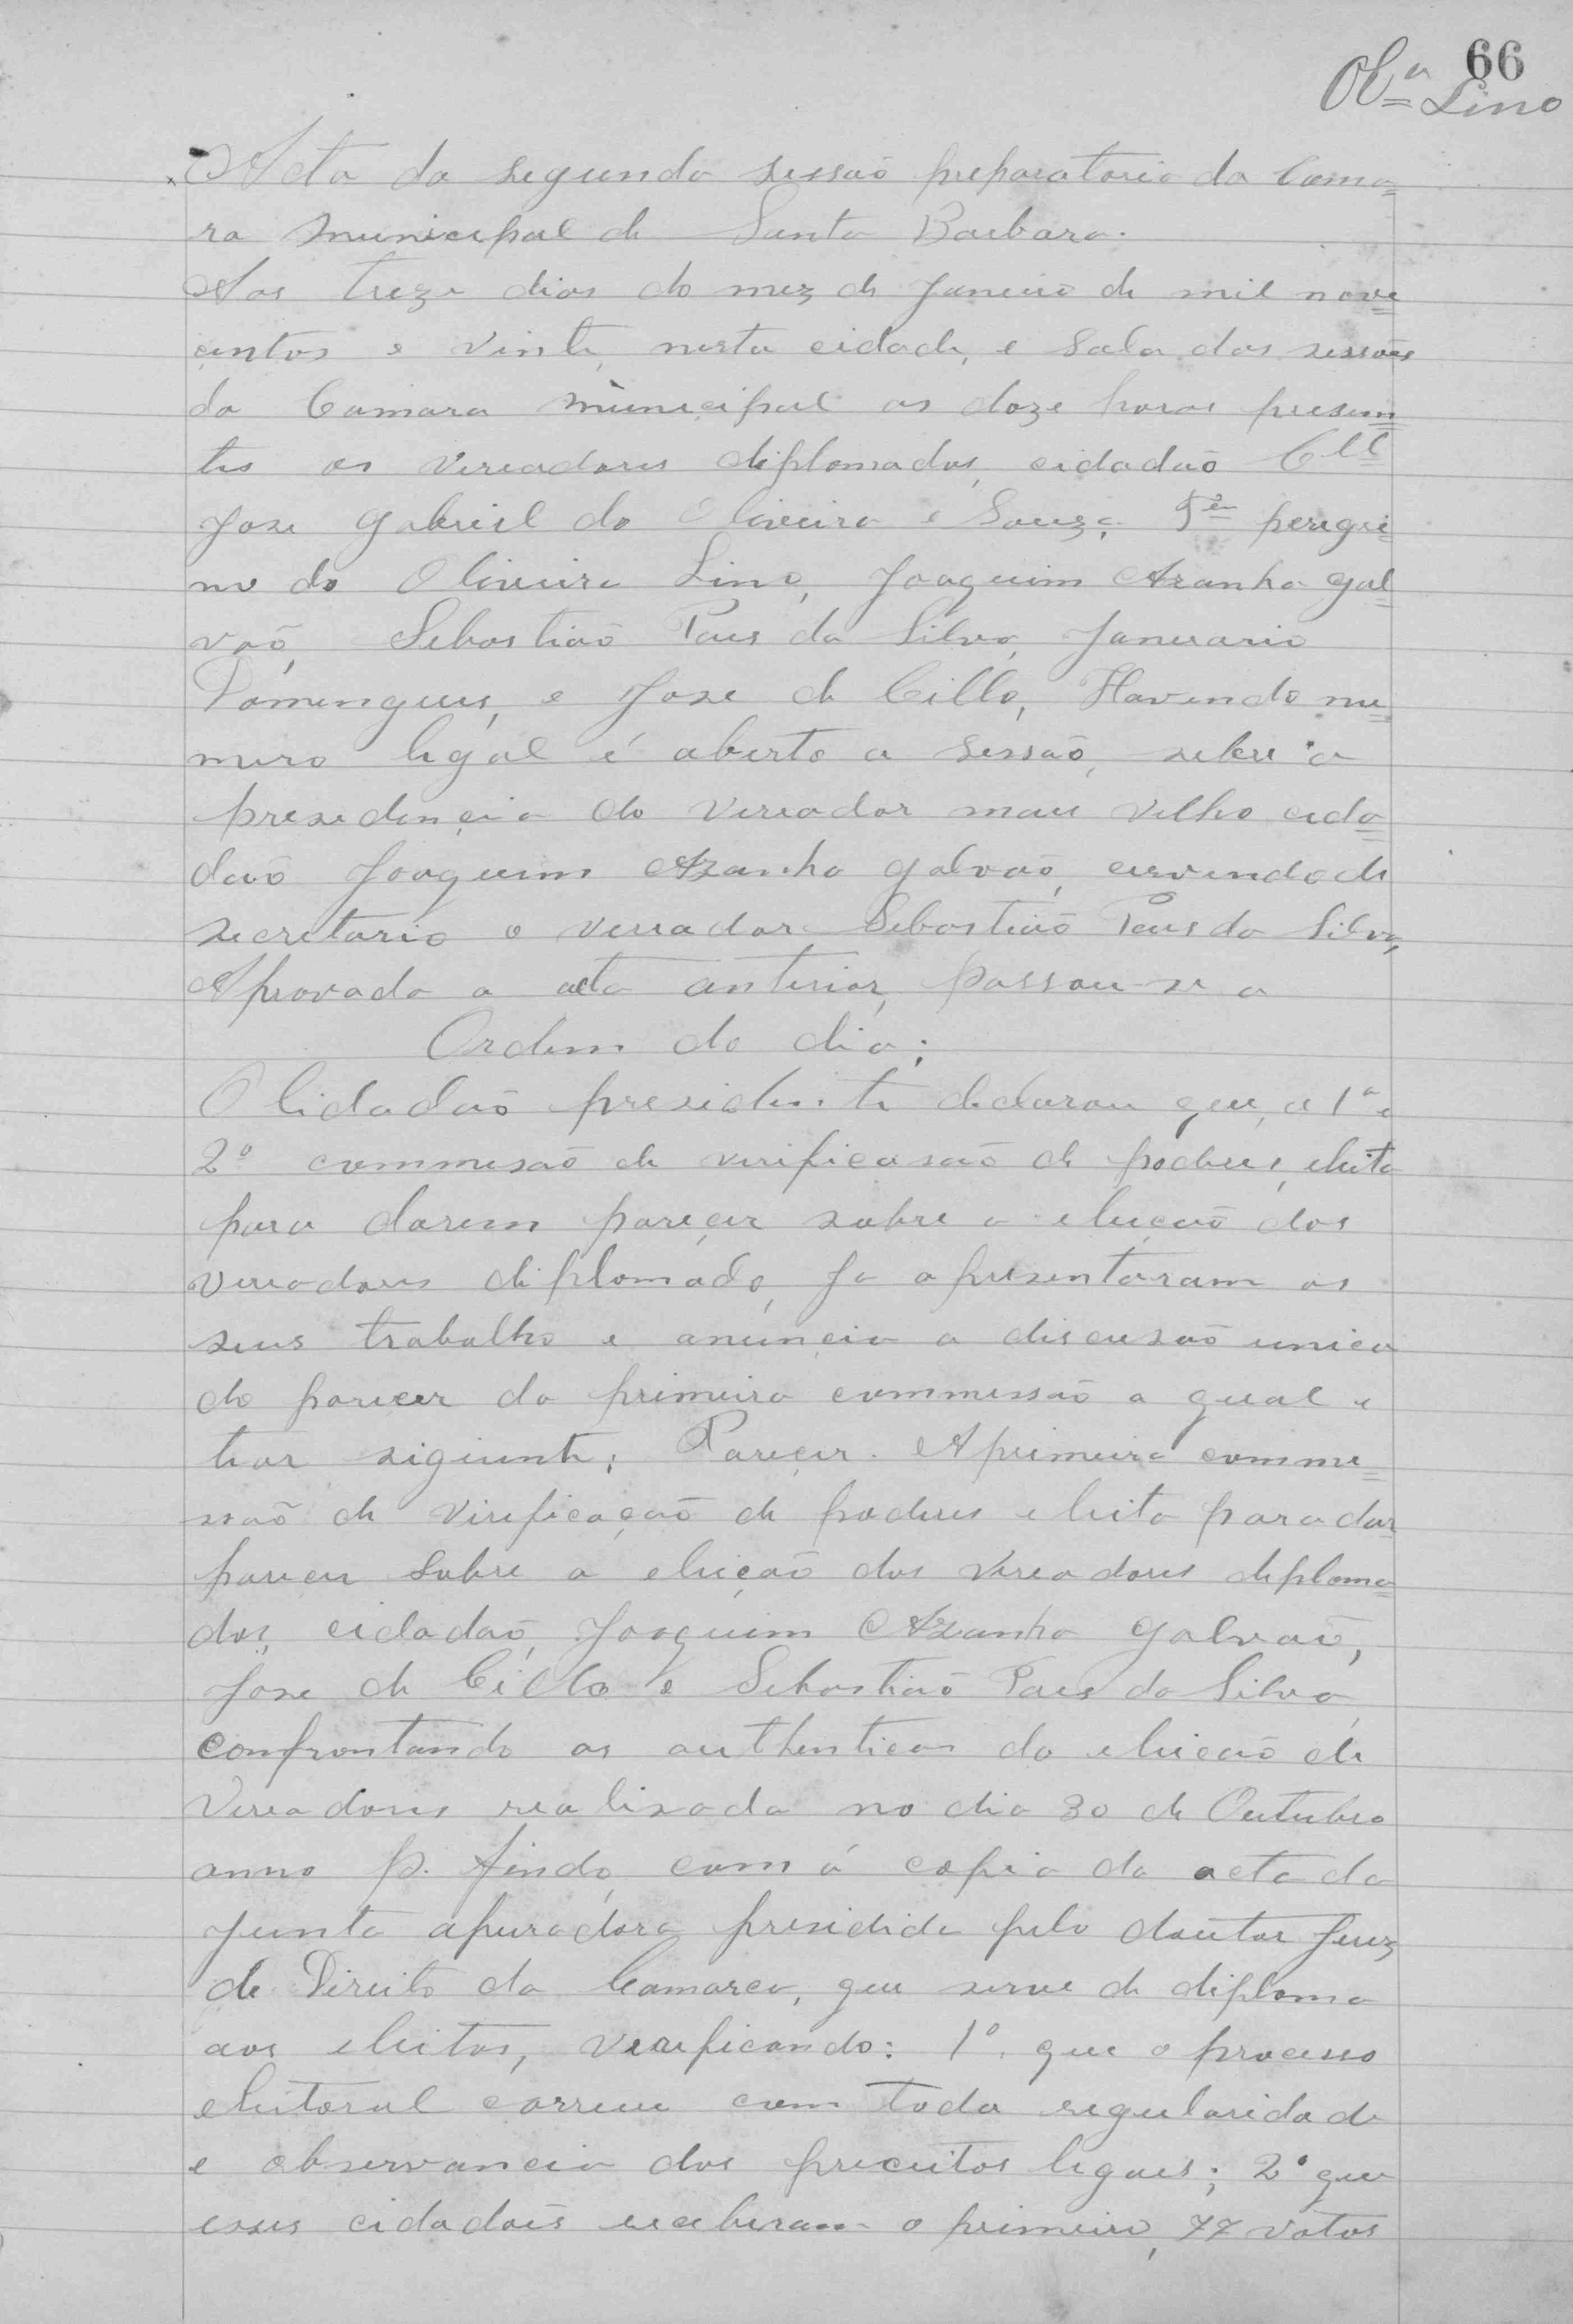 66
Olª Lino
Acta da segunda sessaõ preparatoria da Cama=
ra Municipal de Santa Barbara.
Aos treze dias do mez de Janeiro de mil nove=
centos e vinte, nesta cidade, e sala das sessões
da Camara Municipal as doze horas presen=
tes os vereadores diplomados, cidadaõ Cel
Jose Gabriel de Oliveira e Souza, Ten peregri=
no de Oliveira Lino, Joaquim Azanha Gal=
vaõ, Sebastiaõ Paes da Silva, Januario
Domingues, e Jose de Cillo, Havendo nu=
mero legal é aberto a sessaõ, sobre a
presedencia do vereador mais velho cida=
daõ Joaquim Azanha Galvaõ, cervindo de
secretario o vereador Sebastiaõ Paes da Silva,
Aprovada a acta anterior, passou-se a
Ordem do dia:
O Cidadaõ presidente declarou que, a 1ª e
2ª commisaõ de virificasaõ de poderes, eleita
para darem pareçer sobre a eleiçaõ dos
vereadores diplomado, ja apresentaram os
seus trabalho e anúncia a discusaõ unica
do parecer da primeira commessaõ a qual e
teor siguinte: Pareçer. A primeira commi=
ssaõ de virificaçaõ de poderes eleita para dar
parecer sobre a eleiçaõ dos Vereadores diploma=
dos, cidadaõ, Joaquim Azanha Galvaõ,
Jose de Cillo e Sebastiaõ Paes da Silva,
confrontando as authenticas da eleicaõ de
Vereadores realisada no dia 30 de Outubro
anno p. findo, com á copia da acta da
junta apuradora presidida pelo doutor Juiz
de Direito da Comarca, que serve de diploma
aos eleitos, verificando: 1º que o processo
eleitoral correu com toda regularidade
e observancia dos preceitos legaes; 2º que
esses cidadaõs receberam o primeiro, 77 votos